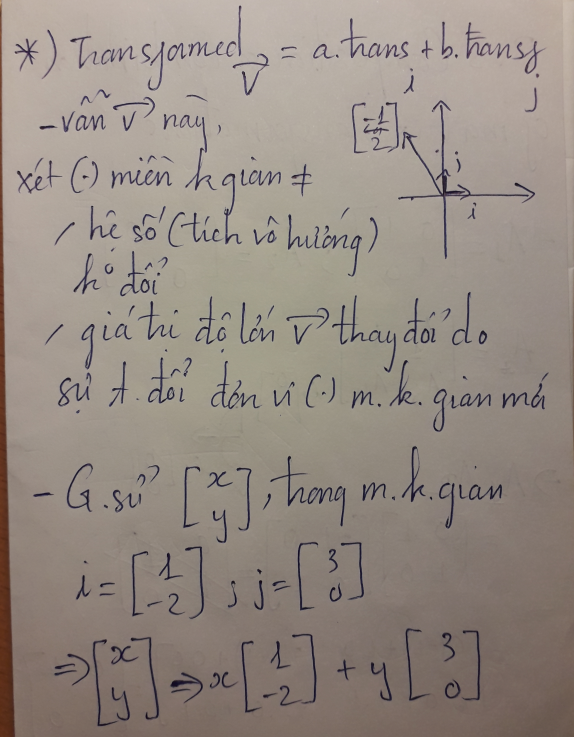 *) Transformed v⃗ = a.trans i + b.transf j
- vẫn v⃗ này,
[-1 2]
j
i
xét (.) miền k gian ≠
/ hệ số (tích vô hướng)
k° đổi
/ giá trị độ lớn v⃗ thay đổi do
sự t.đổi đơn vị (.) m.k.gian mới
- G.sử [x y], trong m.k.gian
i = [1 -2] ; j = [3 0]
⇒ [x y] ⇒ x [1 -2] + y [3 0]